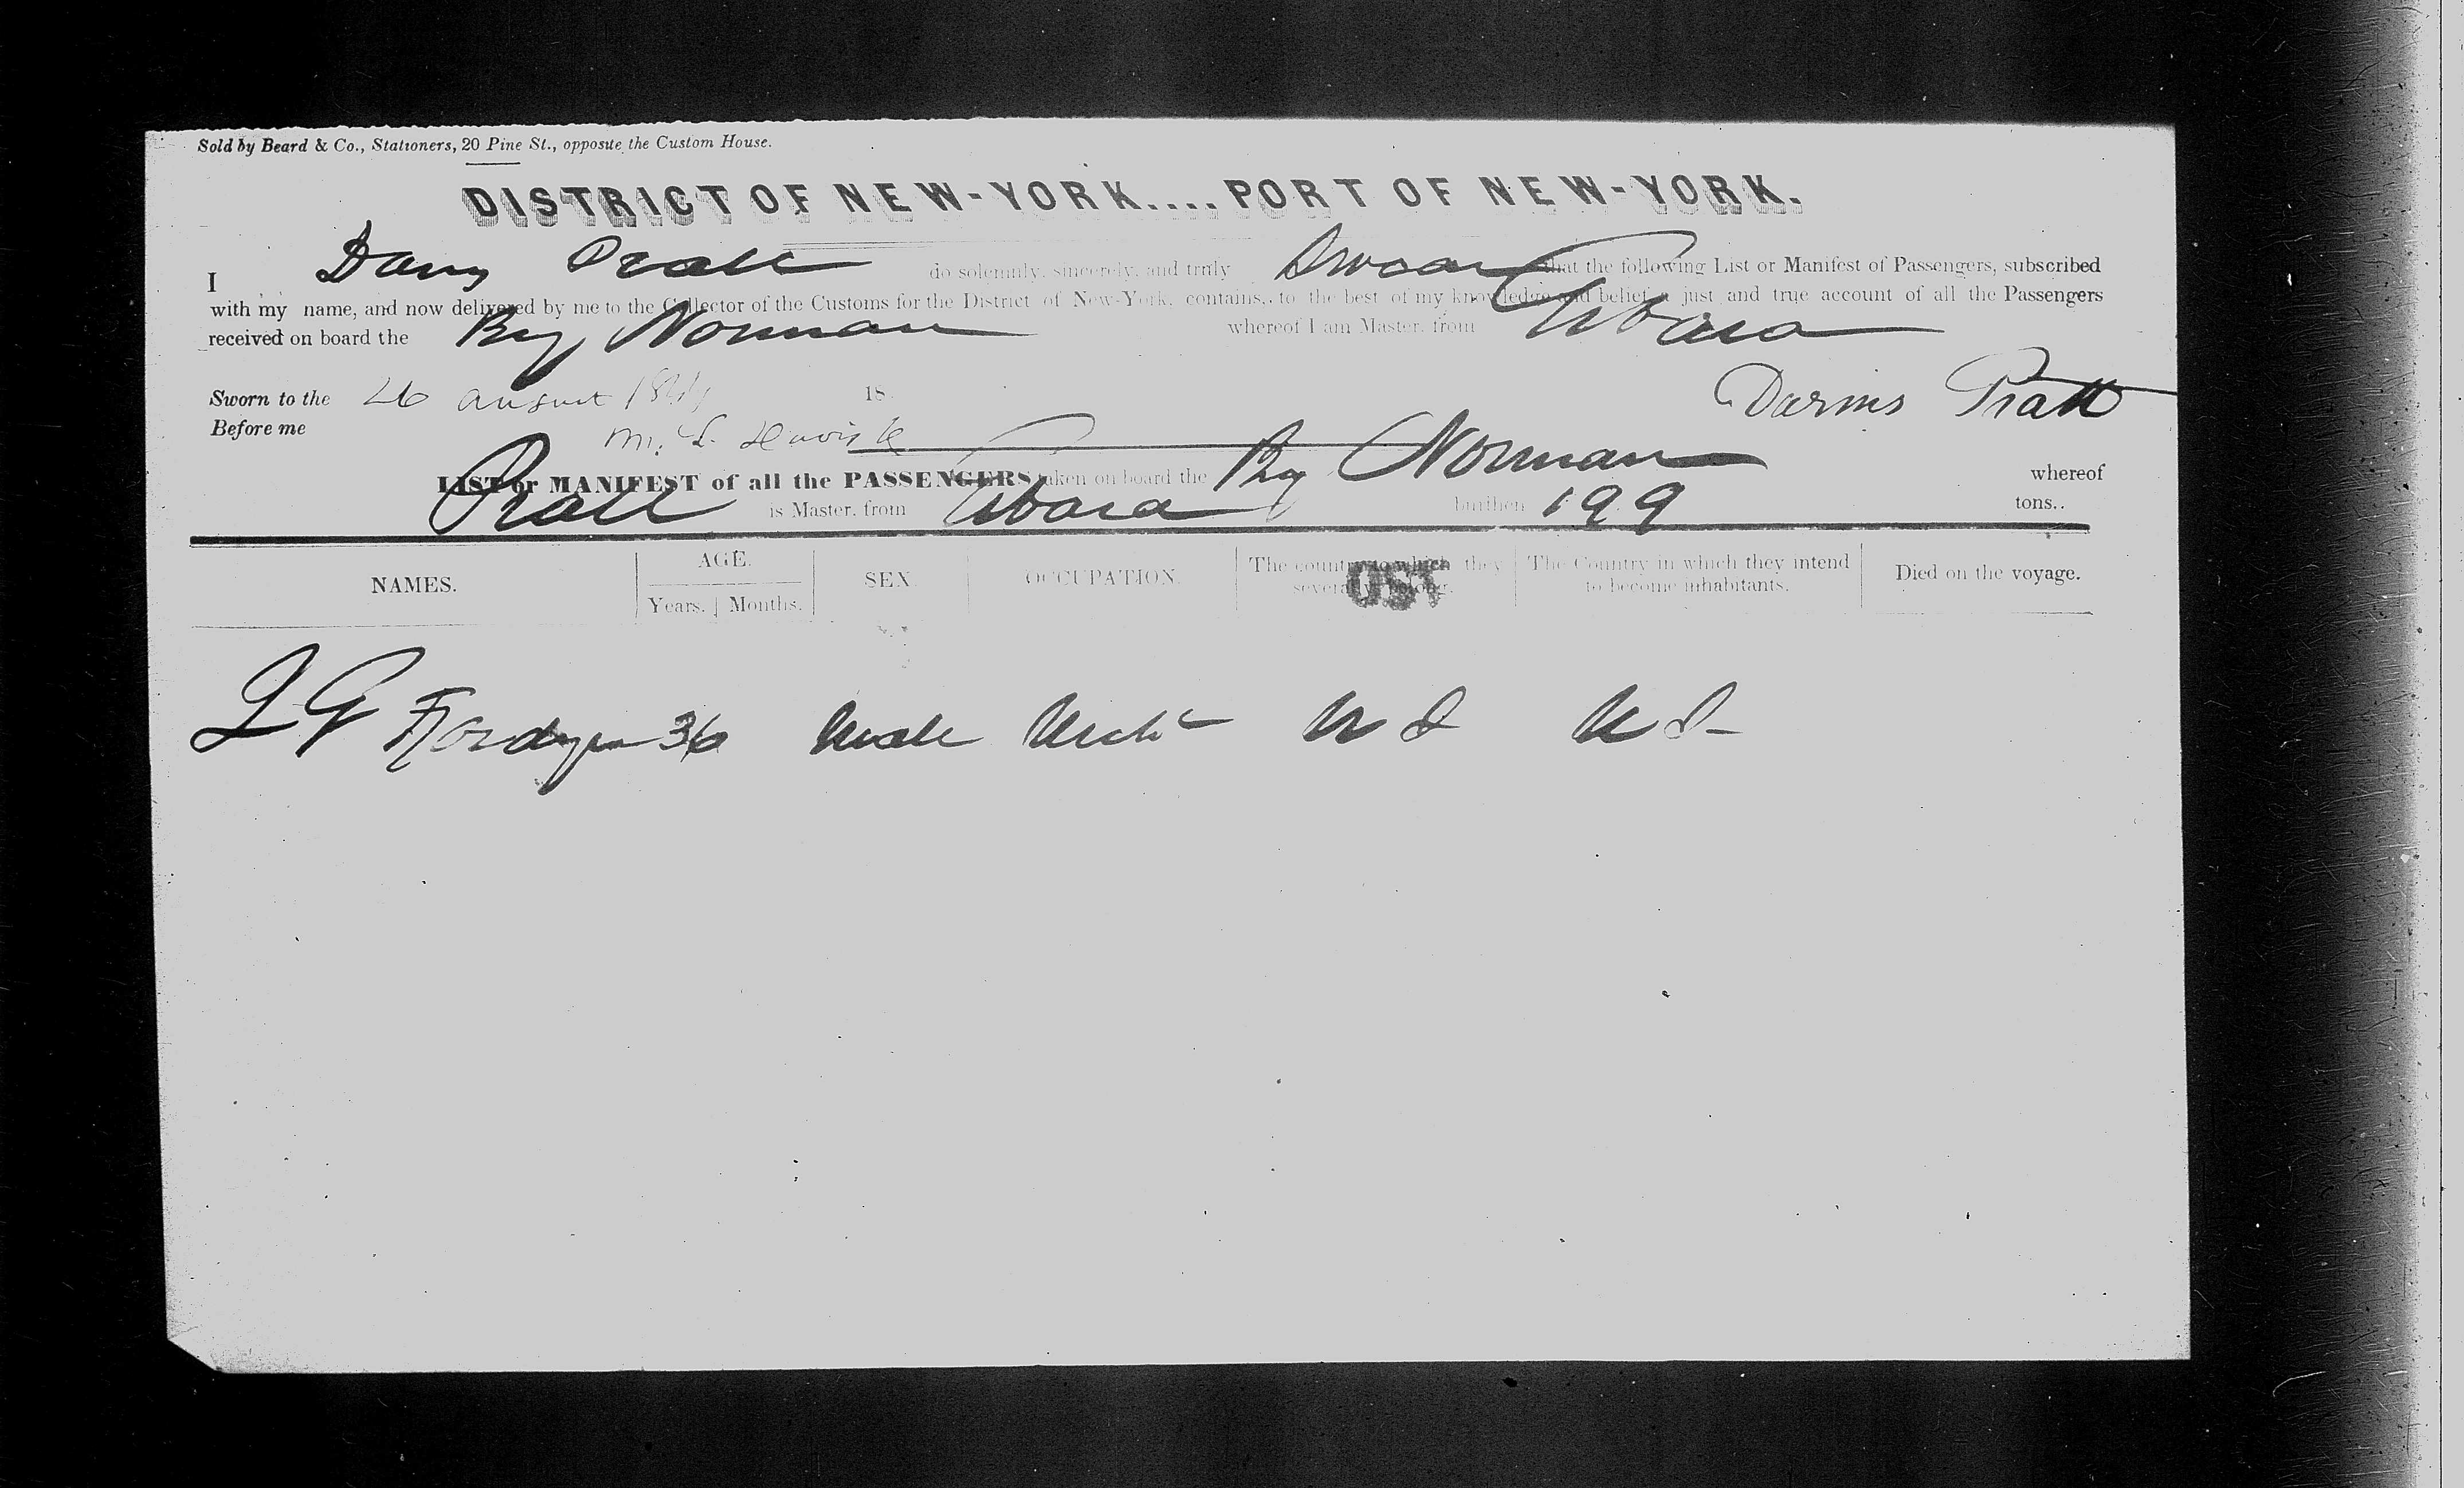 Sold by Beard & Co., Stationers, 20 Pine St., opposite the Custom House.
DISTRICT OF NEW-YORK.... PORT OF NEW-YORK.
I Pratt do solemnly, sincerely, and truly Swear that the following List or Manifest of Passengers, subscribed
with my name, and now delivered by me to the Collector of the Customs for the District of New-York, contains, to the best of my knowledge and belief, a just and true account of all the Passengers
received on board the Brig Norman whereof I am Master, from
Sworn to the 26 August 18
Before me
Darius Pratt
LIST or MANIFEST of all the PASSENGERS taken on board the Brig Norman whereof
Pratt is Master, from burthen 199 tons..
NAMES. AGE. Years. Months. SEX. OCCUPATION. The country to which they severally belong. The Country in which they intend to become inhabitants. Died on the voyage.
36 Male U S U S